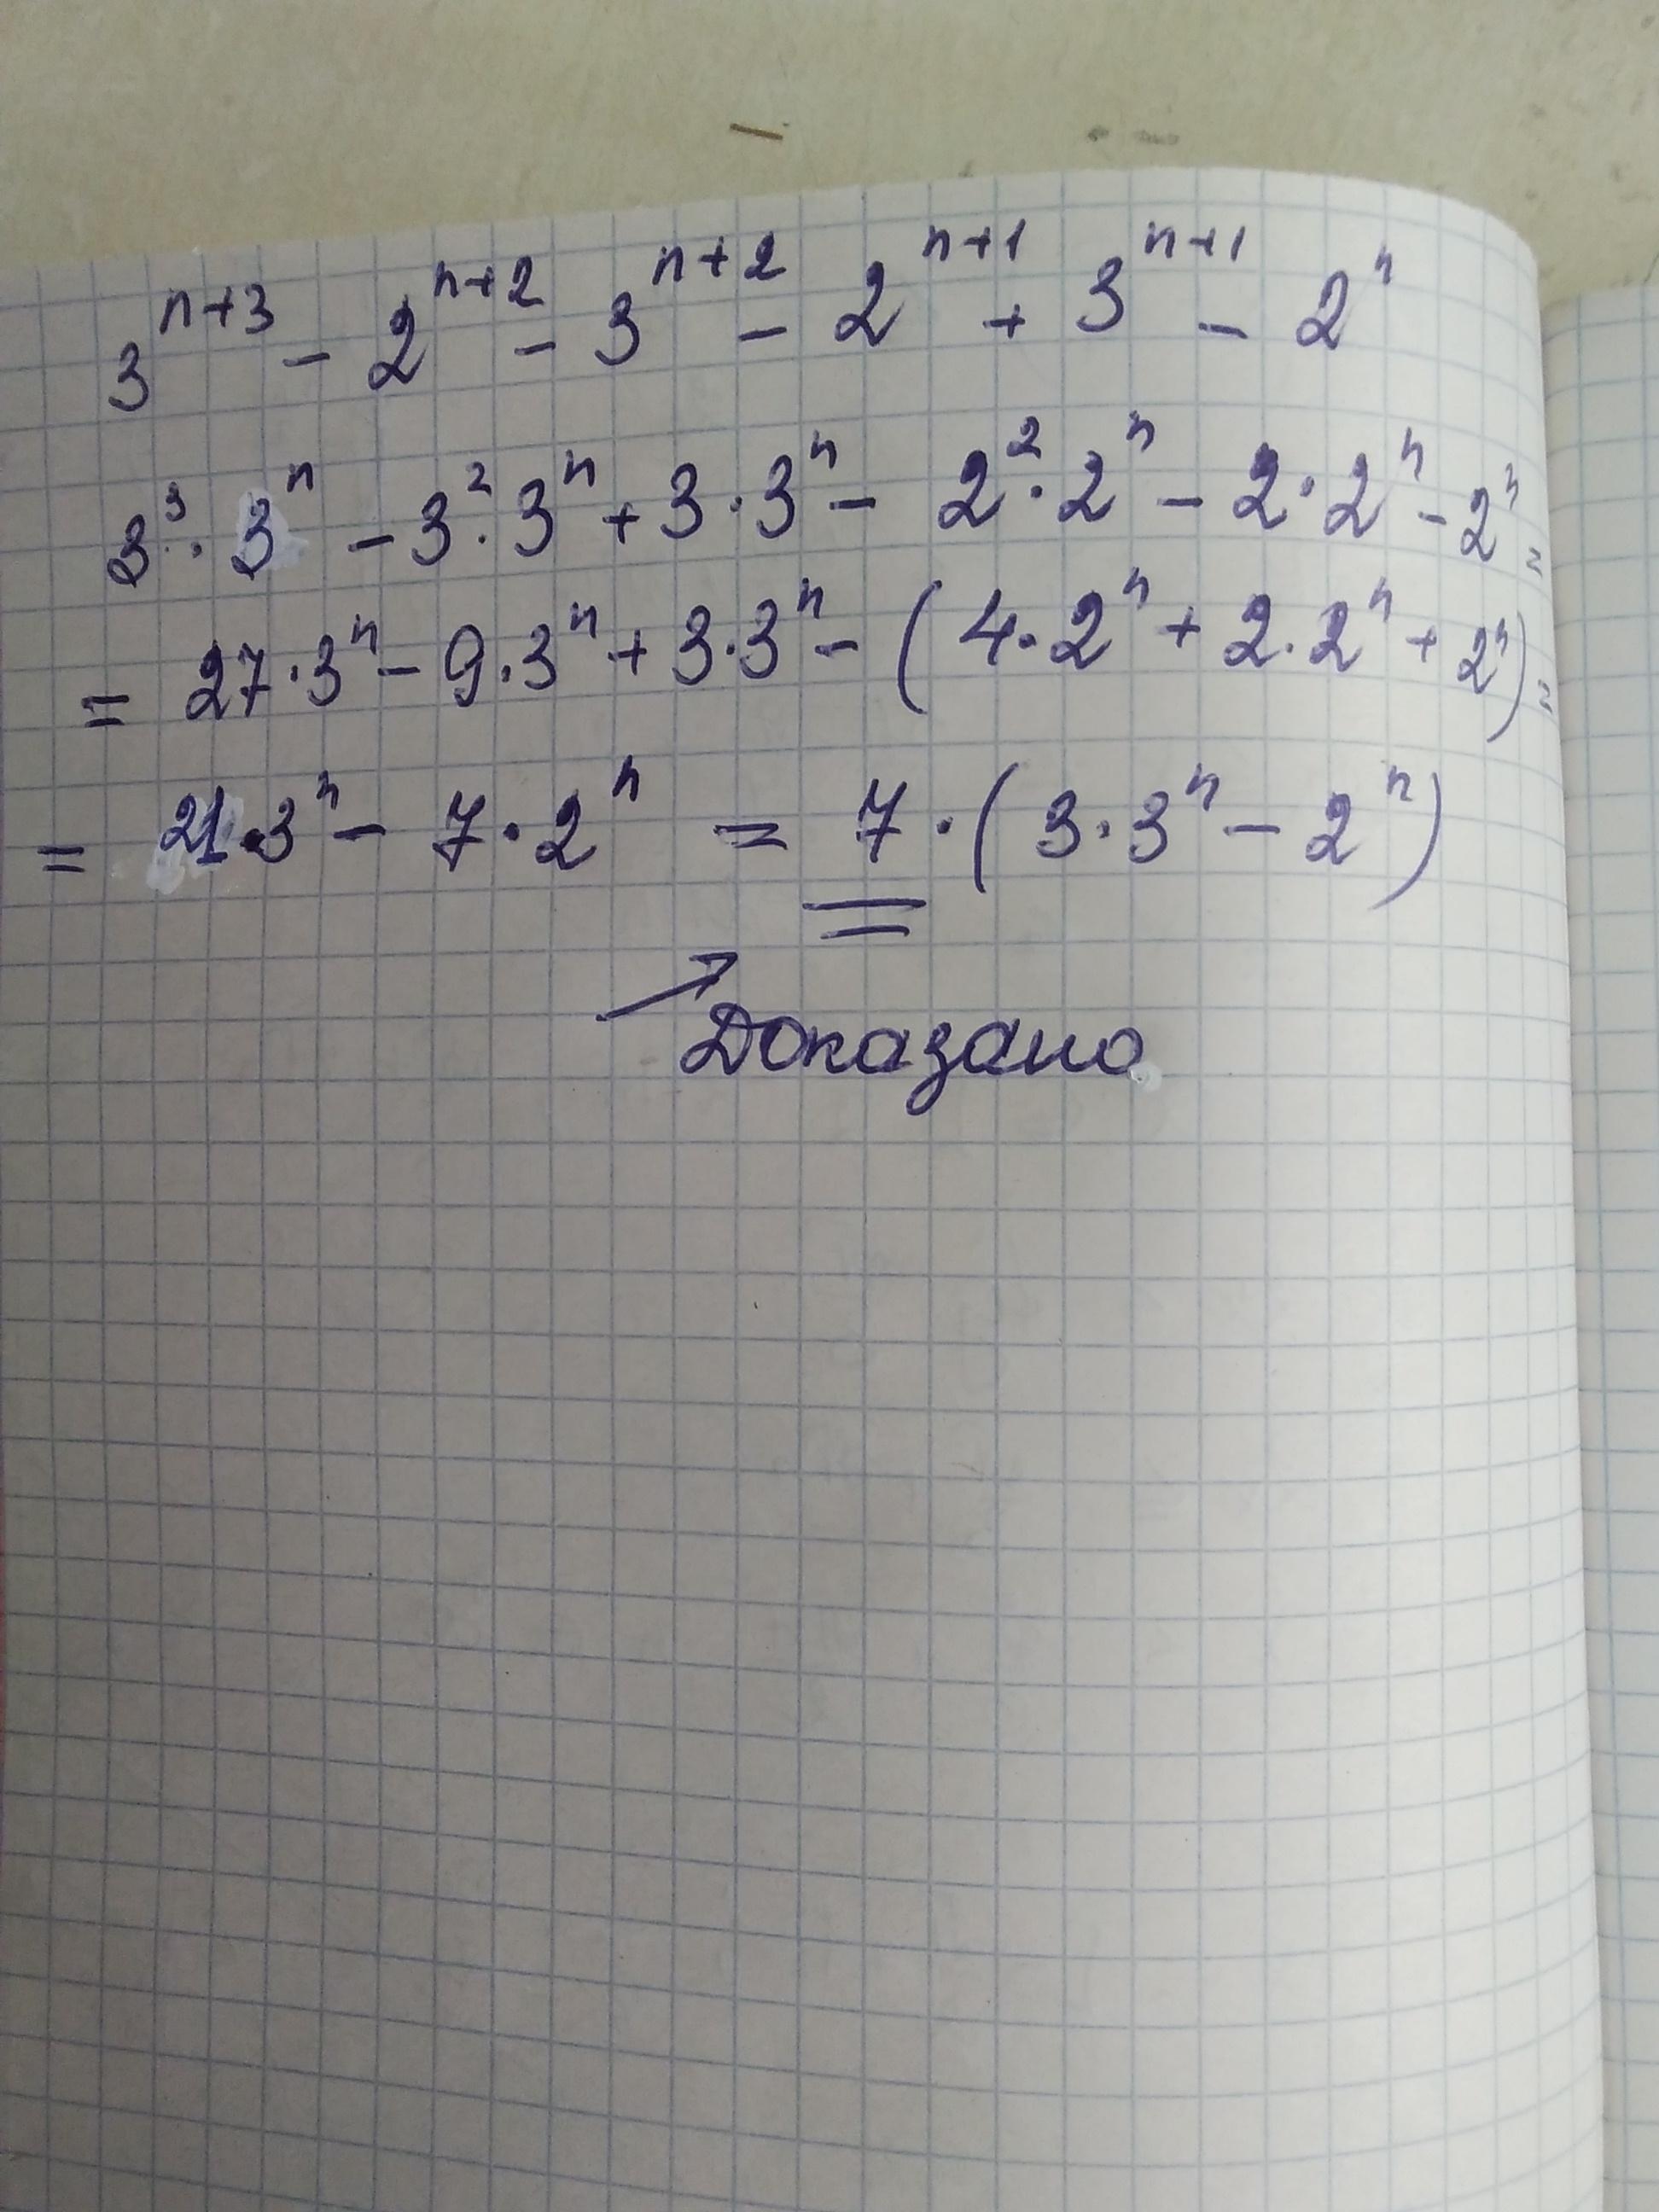 3^{n+3} - 2^{n+2} - 3^{n+2} - 2^{n+1} + 3^{n+1} - 2^n
3^3 · 3^n - 3^2 · 3^n + 3 · 3^n - 2^2 · 2^n - 2 · 2^n - 2^n =
= 27 · 3^n - 9 · 3^n + 3 · 3^n - (4 · 2^n + 2 · 2^n + 2^n) =
= 21 · 3^n - 7 · 2^n = 7 · (3 · 3^n - 2^n)
Доказано